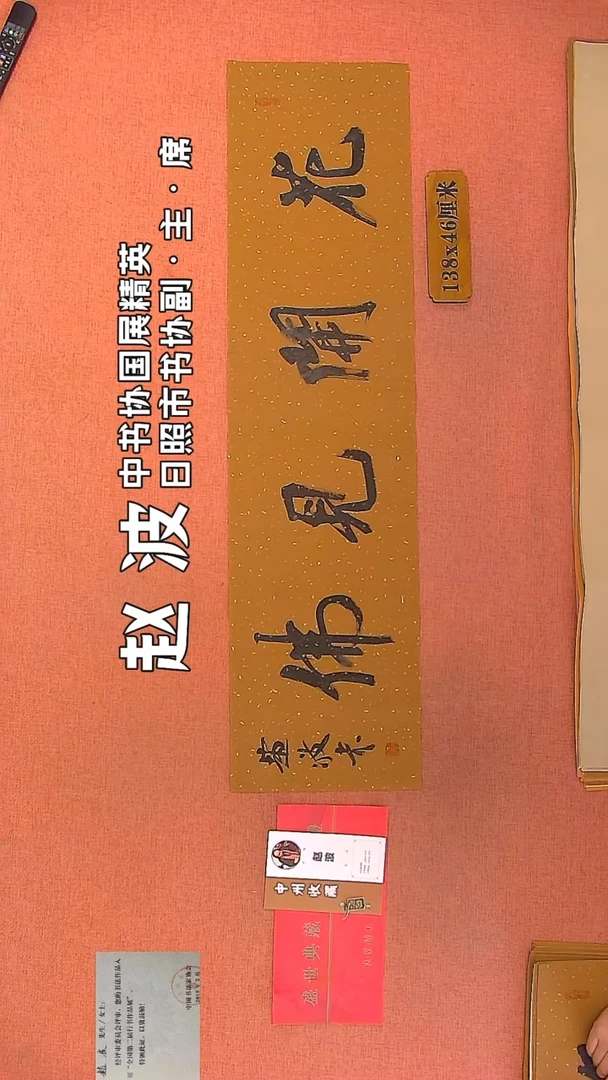 赵波
中书协国展精英
日照市书协副·主·席
花開見佛
138x46厘米
赵波
中州收藏
盛世典藏
先生/女士:
经评审委员会评审,您的书法作品入
展“全国第二届行书作品展”。
特颁此证,以资鼓励!
中国书法家协会